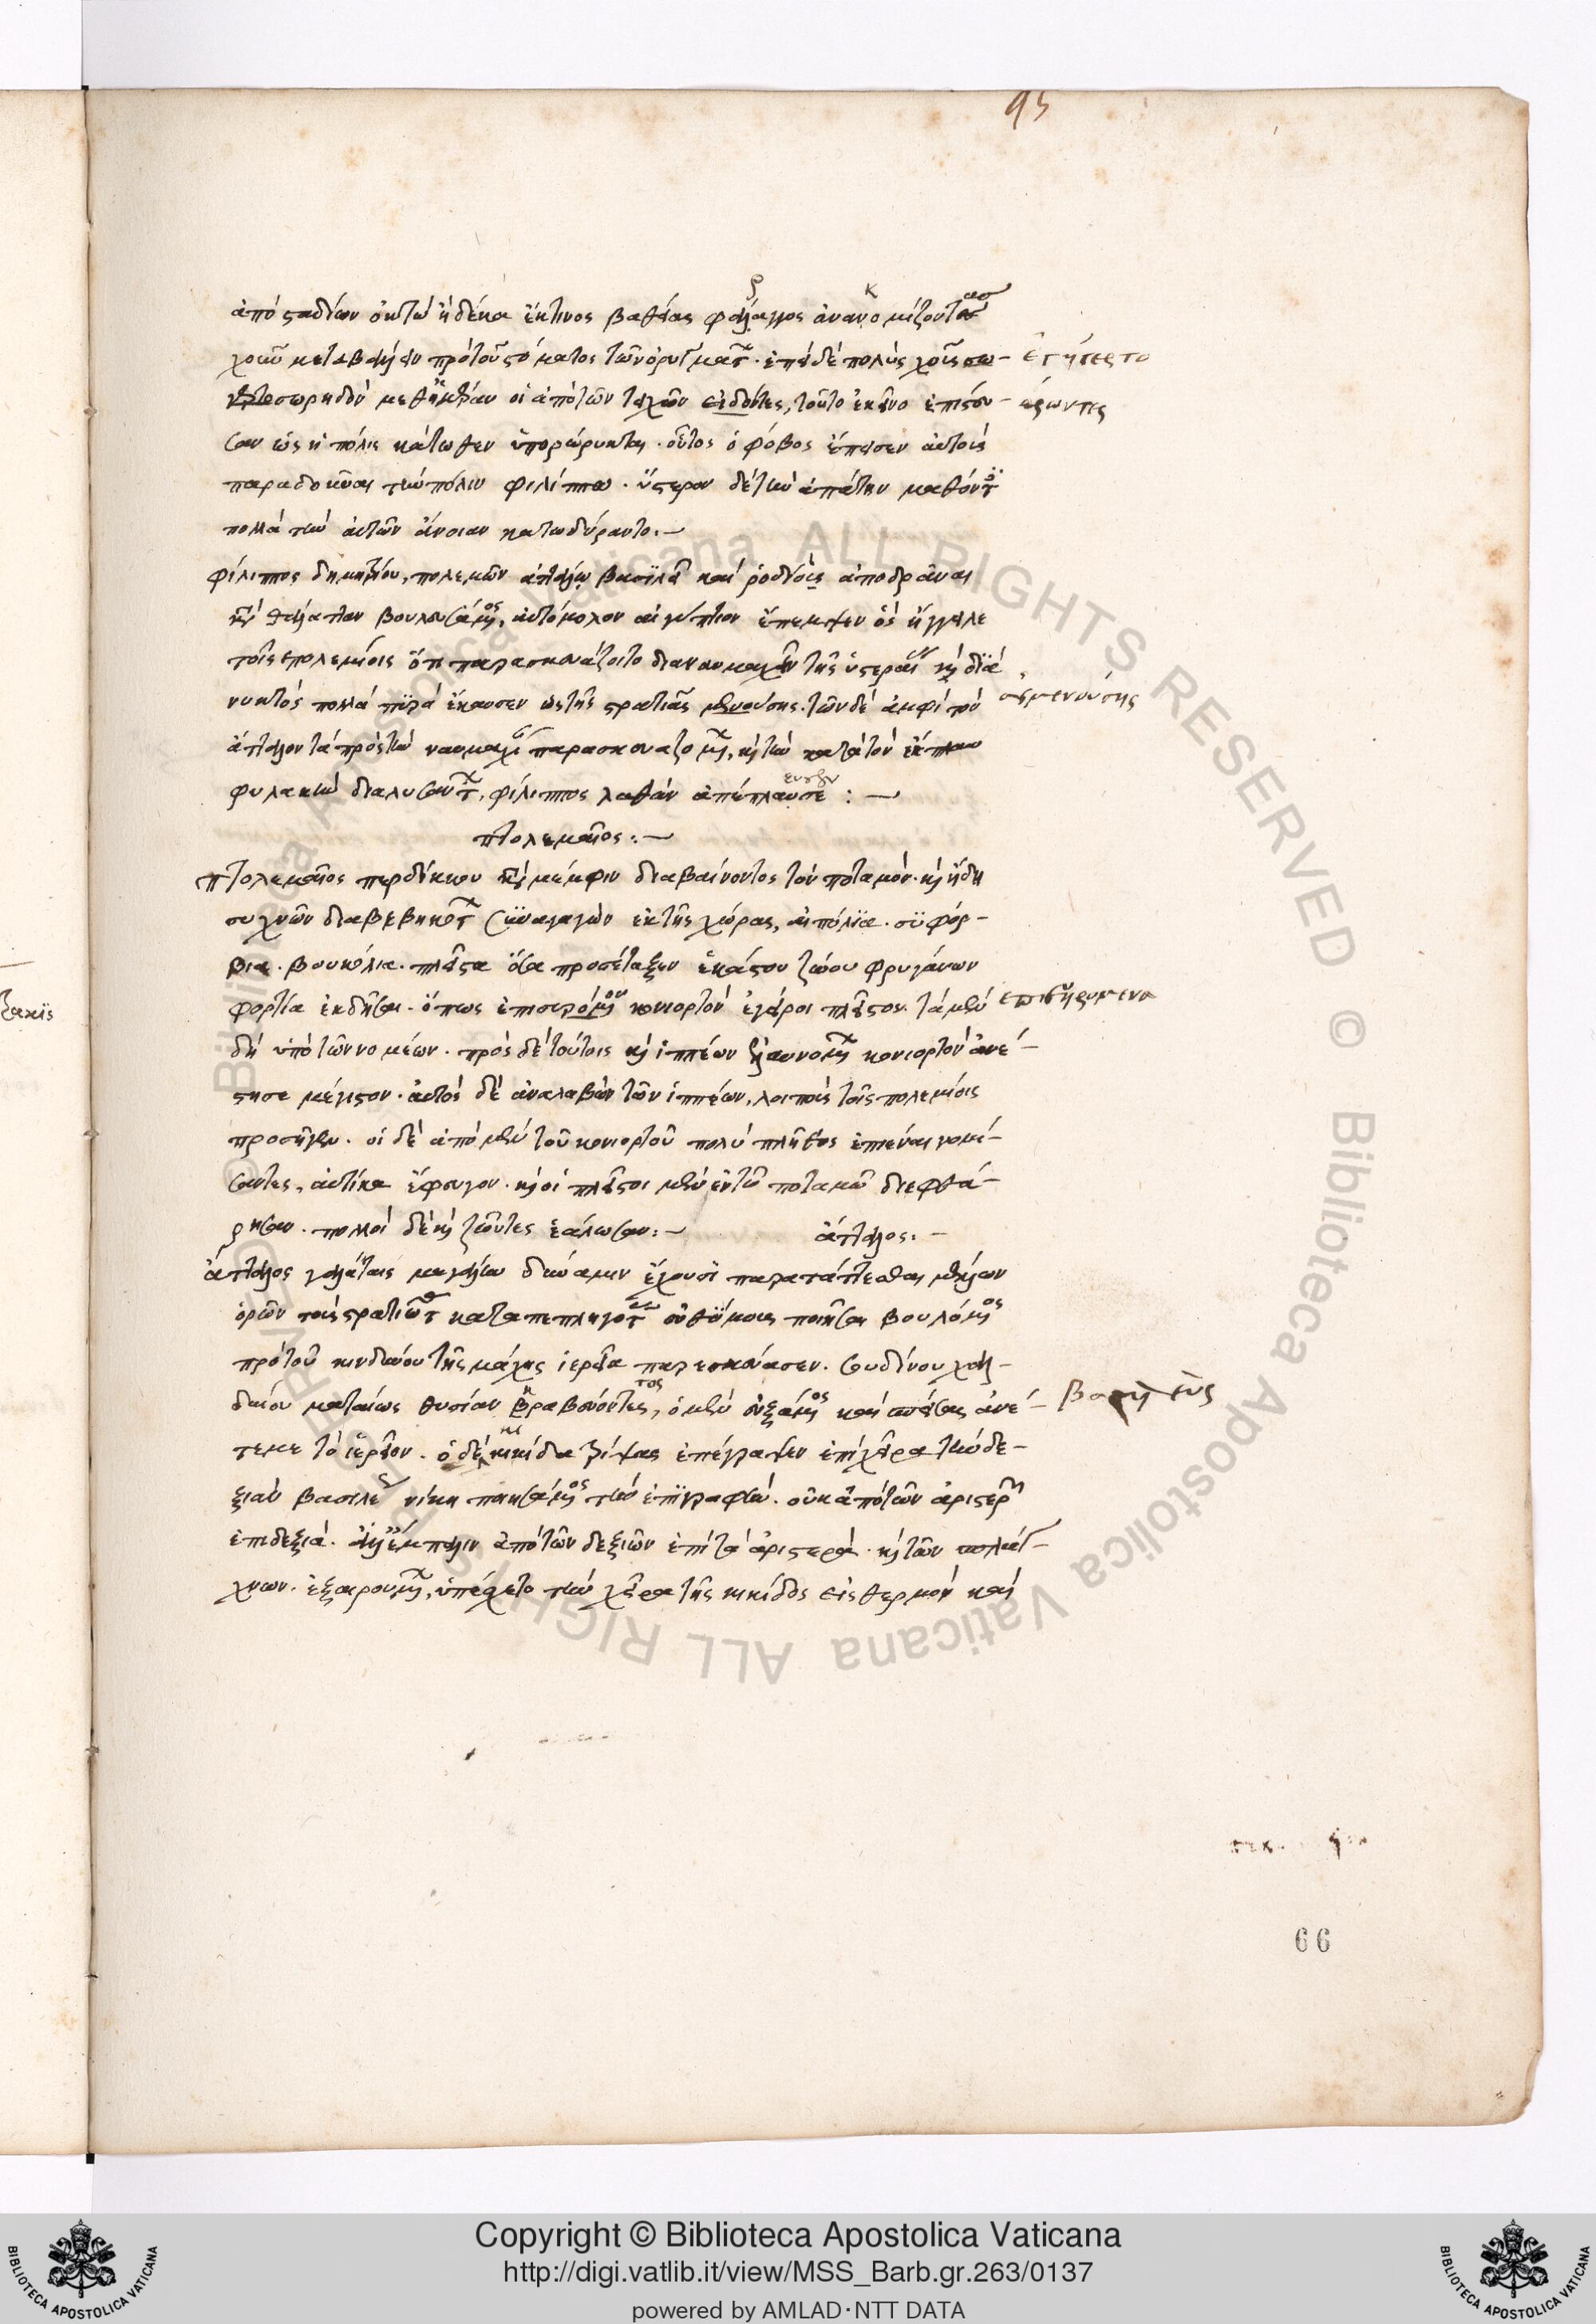 95
ἀπὸ σταδίων ὀκτὼ ἢ δέκα ἔκ τινος βαθείας φάραγγος ἀνακομίζοντας
χοῦν μεταβαλεῖν πρὸ τοῦ στόματος τῶν ὀρυγμάτων. ἐπεὶ δὲ πολὺς χοῦς
σωρηδὸν μεθ' ἡμέραν οἱ ἀπὸ τῶν τειχῶν ἰδόντες, τοῦτο ἐκεῖνο ἐπίστευ-
σαν ὡς ἡ πόλις κάτωθεν ὑπορώρυκται. οὗτος ὁ φόβος ἔπεισεν αὐτοὺς
παραδοῦναι τὴν πόλιν φιλίππῳ. ὕστερον δὲ τὴν ἀπάτην μαθόντες
πολλὰ τὴν αὐτῶν ἄνοιαν κατωδύραντο.
φίλιππος δημητρίου, πολεμῶν ἀττάλῳ βασιλεῖ καὶ ῥοδίοις ἀποδρᾶναι
κατὰ θάλατταν βουλευσάμενος, αὐτόμολον αἰγύπτιον ἔπεμψεν ὃς ἤγγειλε
τοῖς πολεμίοις ὅτι παρασκευάζοιτο διαναυμαχεῖν τῆς ὑστεραίας καὶ διὰ
νυκτὸς πολλὰ πυρὰ ἔκαυσεν ὡς τῆς στρατιᾶς μενούσης. τῶν δὲ ἀμφὶ τὸν
ἄτταλον τὰ πρὸς τὴν ναυμαχίαν παρασκευαζομένων, καὶ τὴν κατὰ τὸν ἔκπλουν
φυλακὴν διαλυσάντων, φίλιππος λαθὼν ἀπέπλευσεν :
πτολεμαῖος :
πτολεμαῖος περδίκκου κατὰ μέμφιν διαβαίνοντος τὸν ποταμόν. καὶ ἤδη
συχνῶν διαβεβηκότων συναγαγὼν ἐκ τῆς χώρας, αἰπόλια. συφόρ-
βια. βουκόλια. πλεῖστα ὅσα προσέταξεν ἑκάστου ζώου φρυγάνων
φορτία ἐκδῆσαι. ὅπως ἐπισυρόμενον κονιορτὸν ἐγείροι πλεῖστον. τὰ μὲν
δὴ ὑπὸ τῶν νομέων. πρὸς δὲ τούτοις καὶ ἱππέων ἐλαυνομένων κονιορτὸν ἀνέ-
στησε μέγιστον. αὐτὸς δὲ ἀναλαβὼν τῶν ἱππέων, λοιποὺς τοῖς πολεμίοις
προσῆγεν. οἱ δὲ ἀπὸ μὲν τοῦ κονιορτοῦ πολὺ πλῆθος ἐπιέναι νομί-
σαντες, αὐτίκα ἔφευγον. καὶ οἱ πλεῖστοι μὲν ἐν τῷ ποταμῷ διεφθά-
ρησαν. πολλοὶ δὲ καὶ ζῶντες ἑάλωσαν : ἄτταλος.
ἄτταλος γαλάταις μεγάλην δύναμιν ἔχουσι παρατάττεσθαι μέλλων
ὁρῶν τοὺς στρατιώτας καταπεπληγότας εὐθύμους ποιῆσαι βουλόμενος
πρὸ τοῦ κινδύνου τῆς μάχης ἱερεῖα παρεσκεύασεν. σουδίνου χαλ-
δαίου ματαίως θυσίαν βραβεύοντος, ὁ μὲν εὐξάμενος καὶ σπείσας ἀνέ- βασιλεὺς
τεμε τὸ ἱερεῖον. ὁ δὲ κηκίδα τρίψας ἐπέγραψεν ἐπὶ χεῖρα τὴν δε-
ξιὰν βασιλέως νίκη ποιησάμενος τὴν ἐπιγραφήν. οὐκ ἀπὸ τῶν ἀριστερῶν
ἐπὶ δεξιά. ἀλλ' ἔμπαλιν ἀπὸ τῶν δεξιῶν ἐπὶ τὰ ἀριστερά. καὶ τῶν σπλάγ-
χνων. ἐξαιρουμένων, ὑπέσχετο τὴν χεῖρα τῆς κηκίδος εἰς θερμὸν καὶ
66
Copyright © Biblioteca Apostolica Vaticana
http://digi.vatlib.it/view/MSS_Barb.gr.263/0137
powered by AMLAD·NTT DATA
BIBLIOTECA APOSTOLICA VATICANA
BIBLIOTECA APOSTOLICA VATICANA
© Biblioteca Apostolica Vaticana ALL RIGHTS RESERVED © Biblioteca Apostolica Vaticana ALL RIGHTS RESERVED